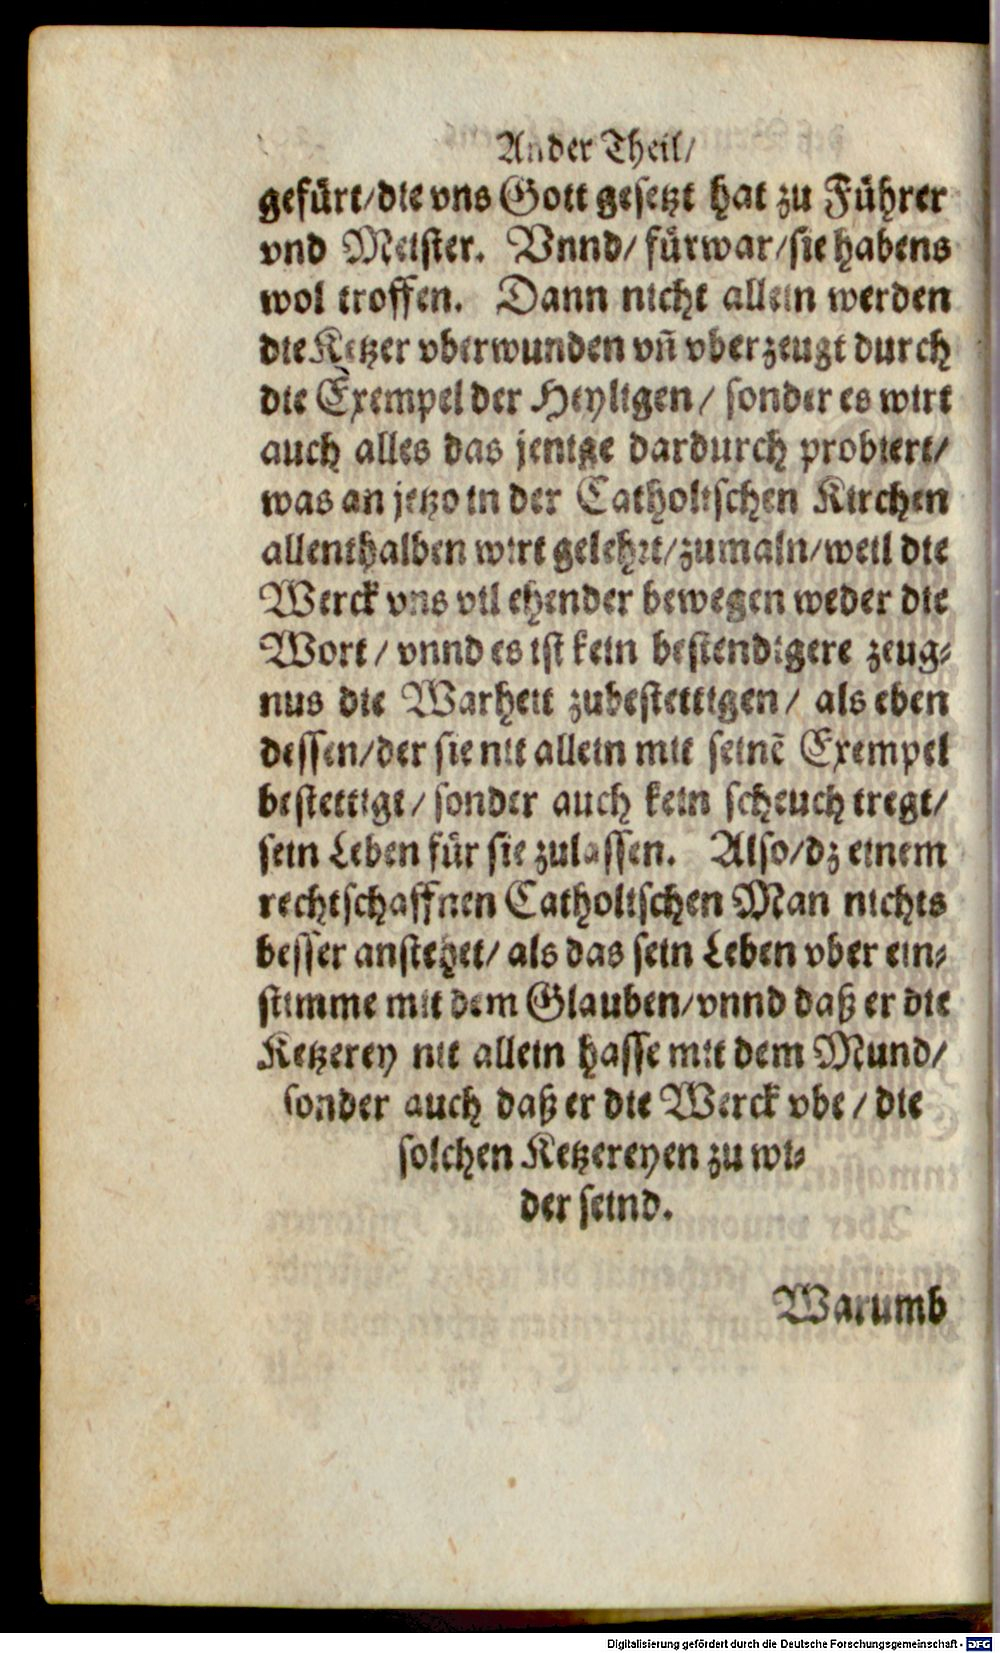 Ander Theil/
gefürt/die vns Gott gesetzt hat zu Führer
vnd Meister. Vnnd/ fürwar/sie habens
wol troffen. Dann nicht allein werden
die Ketzer vberwunden vñ vberzeugt durch
die Exempel der Heyligen/ sonder es wirt
auch alles das jenige dardurch probiert/
was an jetzo in der Catholischen Kirchen
allenthalben wirt gelehrt/zumaln/weil die
Werck vns vil ehender bewegen weder die
Wort/ vnnd es ist kein bestendigere zeug-
nus die Warheit zubestettigen/ als eben
dessen/der sie nit allein mit seinẽ Exempel
bestettigt/ sonder auch kein scheuch tregt/
sein Leben für sie zulassen. Also/dz einem
rechtschaffnen Catholischen Man nichts
besser anstehet/ als das sein Leben vber ein-
stimme mit dem Glauben/vnnd daß er die
Ketzerey nit allein hasse mit dem Mund/
sonder auch daß er die Werck vbe/ die
solchen Ketzereyen zu wi-
der seind.
Warumb
Digitalisierung gefördert durch die Deutsche Forschungsgemeinschaft - DFG